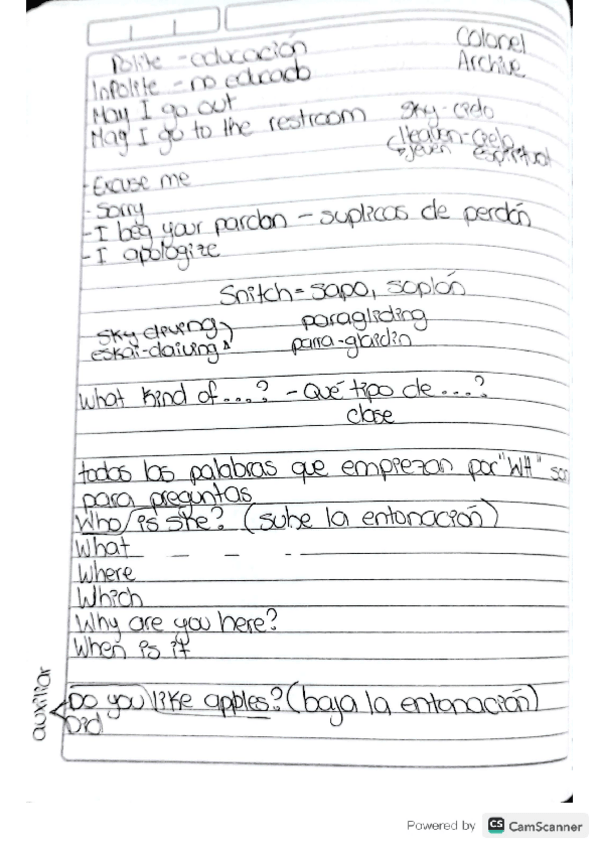 Polite - educación
Colonel
Inpolite - no educado
Archive
May I go out
May I go to the restroom
Sky - cielo
Heaven - cielo
jeven espiritual
- Excuse me
- Sorry
- I beg your pardon - suplicas de perdón
- I apologize
Snitch = sapo, soplón
Sky diving
paragliding
eskai-daiving
parra-glaidin
What kind of...? - Qué tipo de...?
clase
todas las palabras que empiezan por "WH" son
para preguntas
Who is she? (sube la entonación)
What
Where
Which
Why are you here?
When is it
auxiliar
Do you like apples? (baja la entonación)
Did
Powered by CS CamScanner